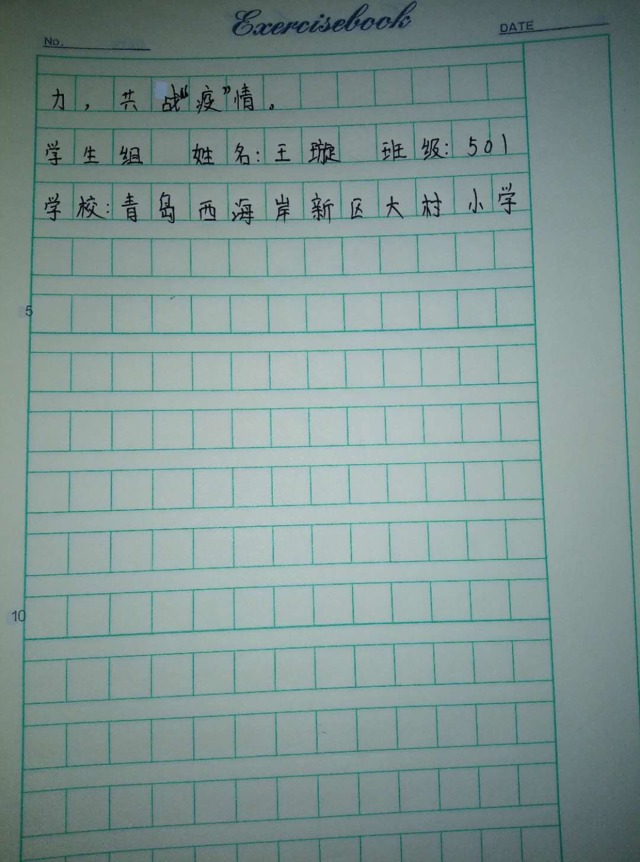 Exercisebook
No.
DATE
力，共战“疫”情。
学生组 姓名:王璇 班级:501
学校:青岛西海岸新区大村小学
5
10